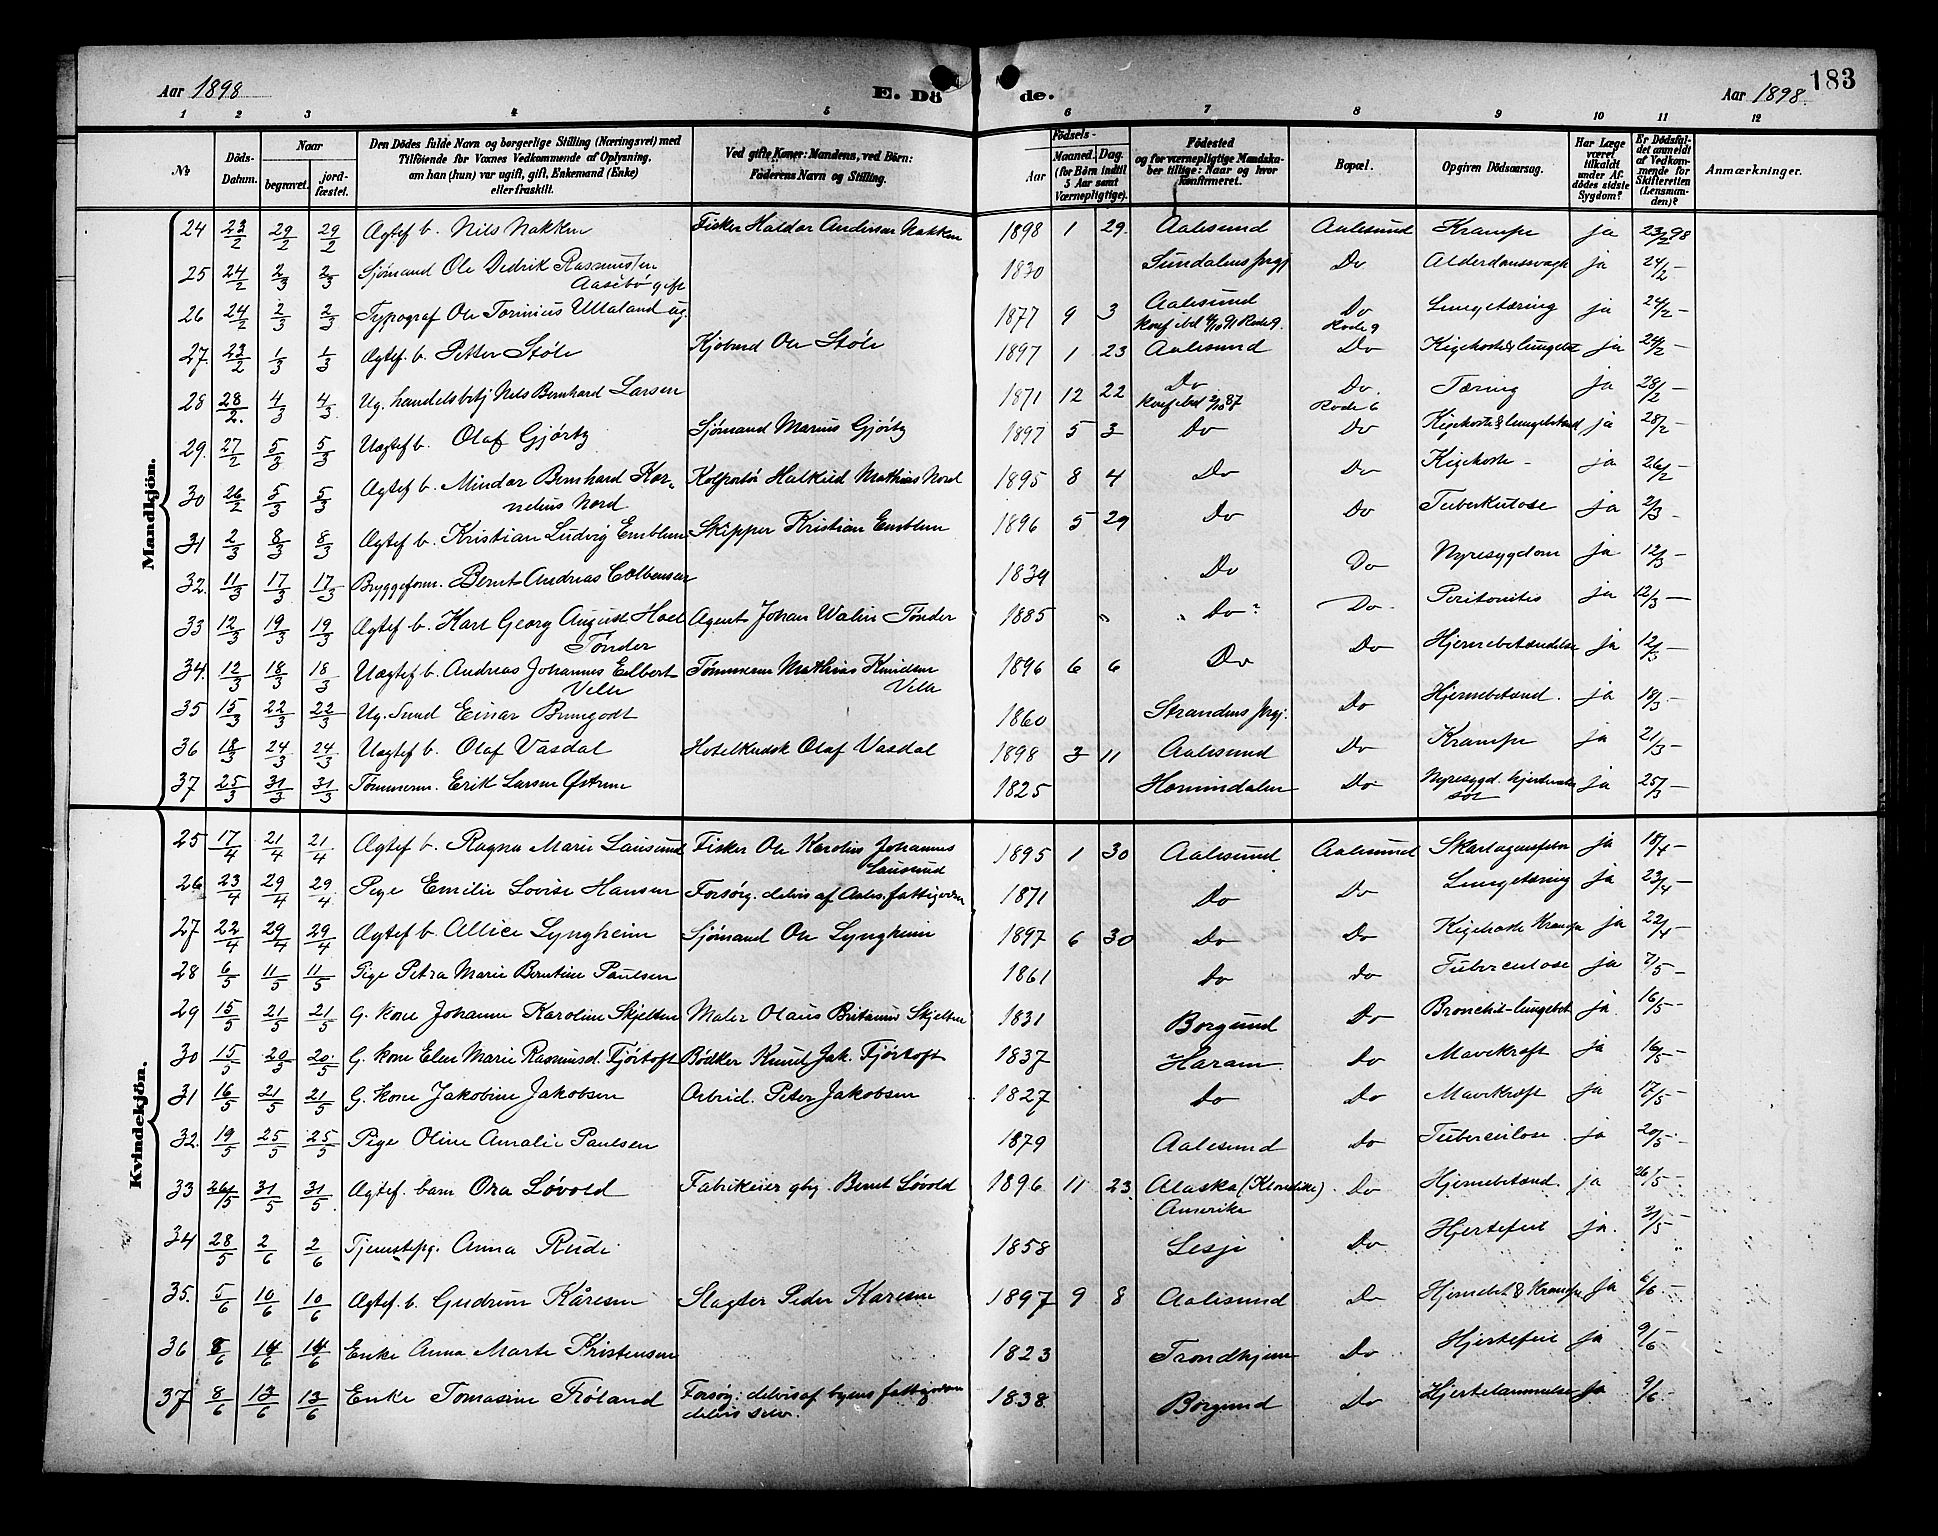 Aar 1898
E. Dö
de.
Aar 1898.
183
1 2 3 4 5 6 7 8 9 10 11 12
No
Döds-Datum.
Naar
begravet.
jord-fæstet.
Den Dödes fulde Navn og borgerlige Stilling (Næringsvei) med
Tilföiende for Voxnes Vedkommende af Oplysning,
om han (hun) var ugift, gift, Enkemand (Enke)
eller fraskilt.
Ved gifte Koner: Mandens, ved Börn:
Faderens Navn og Stilling.
Födsels-
Aar
Maaned. Dag.
(for Börn indtil
5 Aar samt
Værnepligtige).
Födested
og for værnepligtige Mandska-
ber tillige: Naar og hvor
konfirmeret.
Bopæl.
Opgiven Dödsaarsag.
Har Læge
været
tilkaldt
under Af-
dödes sidste
Sygdom?
Er Dödsfal-
det anmeldt
af Vedkom-
mende for
Skifteretten
(Lensman-
den)?
Anmærkninger.
Mandkjön.
24 23/2 29/2 29/2 Ægtef b. Nils Nakken Fisker Haldor Andersen Nakken 1898 1 29 Aalesund Aalesund Krampe ja 23/2 98
25 24/2 2/3 2/3 Sjømand Ole Didrik Rasmussen 1830 Sundalens prgj Do Alderdomssvagh ja 24/2 —
Aasebø gift
26 24/2 2/3 2/3 Typograf Ole Tominus Ulaland ug. 1877 9 3 Aalesund Do Lungetæring ja 24/2 —
Konf ibd 4/10 91 Rode 9. Rode 9
27. 23/2 1/3 1/3 Ægtef. b. Petter Støle Kjøbmd Ole Støle 1897 1 23 Aalesund Do Kigehoste & lungebet ja 24/2 —
28 28/2. 4/3 4/3 Ug. handelsbetj Nils Bernhard Larsen 1871 12 22 Do Do. Tæring ja 28/2 —
Konf ibd 2/10 87 Rode 6
29. 27/2 5/3 5/3 Uægtef b. Olaf Gjørtz Sjømand Marius Gjørtz 1897 5 3 Do Do Kigehoste & lungebetænd ja 28/2 —
30 26/2 5/3 5/3 Ægtef b. Mindor Bernhard Kor- Kolportør Halkild Mathias Nord 1895 8 4 Do Do Kigehoste — ja 26/2 —
nelius Nord
31 2/3 8/3 8/3 Ægtef b. Kristian Ludvig Emblem Skipper Kristian Emblem 1896 5 29 Do Do Tuberkulose ja 2/3 —
32. 11/3 17/3 17/3 Bryggeform. Bernt Andreas Colbensen 1839 Do Do Nyresygdom ja 12/3 —
33 12/3 19/3 19/3 Ægtef b. Karl Georg August Hoel Agent Johan Walin Tønder 1885 " " Do Do Peritonitis ja 12/3 —
Tønder
34. 12/3 18/3 18/3 Uægtef b. Andreas Johannes Elbert Tømmerm Mathias Knudsen 1896 6 6 Do Do Hjernebetændelse ja 12/3 —
Velle Velle
35 15/3 22/3 22/3 Ug. Smed Einar Brungodt 1860 Strandens prgj. Do Hjernebetænd. ja 18/3 —
36 18/3 24/3 24/3 Uægtef b. Olaf Vasdal Hotelkudsk Olaf Vasdal 1898 3 11 Aalesund Do Krampe ja 21/3 —
37 25/3 31/3 31/3 Tømmerm. Erik Larsen Østrem 1825 Hornindalen Do Nyresygd. ja 25/3 —
Kvindekjön.
25 17/4 21/4 21/4 Ægtef b. Ragna Marie Lausund Fisker Ole Karolius Johannes 1895 1 30 Aalesund Aalesund Skarlagensfeber ja 18/4 —
Lausund
26 23/4 29/4 29/4 Pige Emilie Lovise Hansen Forsørg. delvis af Aales. fattigvæsen 1871 Do Do Lungetæring ja 23/4 —
27 22/4 29/4 29/4 Ægtef b. Allice Lyngheim Sjømand Ole Lyngheim 1897 6 30 Do Do Kigehoste Krampe ja 22/4 —
28 6/5 11/5 11/5 Pige Petra Marie Berntine Paulsen 1861 Do do Tuberculose ja 7/5 —
29 15/5 21/5 21/5 G. kone Johanne Karoline Skjelten Maler Olaus Britanus Skjelten 1831 Borgund Do Bronchit-lungebet ja. 16/5 —
30 15/5 20/3 20/5 G. kone Elen Marie Rasmusd. Fjørtoft Bødker Knut Jak. Fjørtoft 1837 Haram Do Mavekræft ja 16/5 —
31 16/5 21/5 21/5 G. kone Jakobine Jakobsen Arbeid. Peter Jakobsen 1827 do Do Mavekræft ja 17/5 —
32. 19/5 25/5 25/5 Pige Oline Amalie Paulsen 1879 Aalesund Do Tuberculose. ja 20/5 —
33 26/5 31/5 31/5 Ægtef. barn Ora Løvold Fabrikeier gbr Bernt Løvold 1896 11 23 Alaska (Klondike) Do Hjernebetænd. ja 26/5 —
Amerika
34 28/5 2/6 2/6 Tjenestpg. Anna Rudi 1858 Lesje Do Hjertefeil ja. 31/5 —
35. 5/6 10/6 10/6 Ægtef. b. Gudrun Kåresen Slagter Peder Karesen 1897 9 8 Aalesund Do Hjernebet & Krampe ja 6/6 —
36 8/6 14/6 14/6 Enke Anna Marte Kristensen 1823 Trondhjem Do Hjertefeil ja 9/6 —
37 8/6 13/6 13/6 Enke Tomasine Frøland Forsørg: delvis af byens fattigvæsen 1838 Borgund Do Hjertelammelse ja 9/6 —
delvis selv.